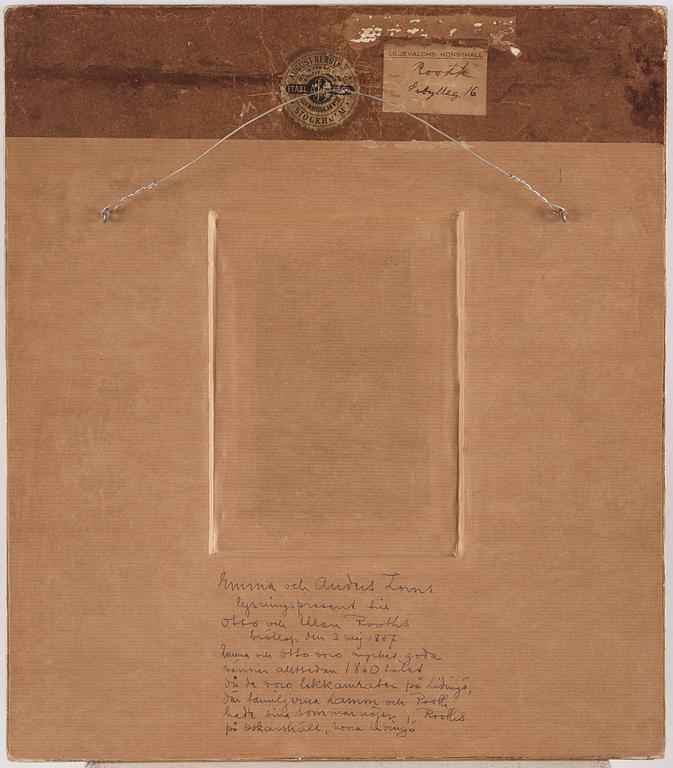 AUGUST BERG
ETABL.
STOCKHOLM
LILJEVALCHS KONSTHALL
Rooth
Sibylleg 16
Emma och Anders Zorns
lysningspresent till
Otto och Ellen Rooths
bröllop den 3 maj 1887
Emma och Otto voro mycket goda
vänner alltsedan 1860 talet
då de voro lekkamrater på Lidingö,
där familjerna Lamm och Rooth
hade sina sommarnöjen, Rooths
på Oskarshäll, norra Lidingö